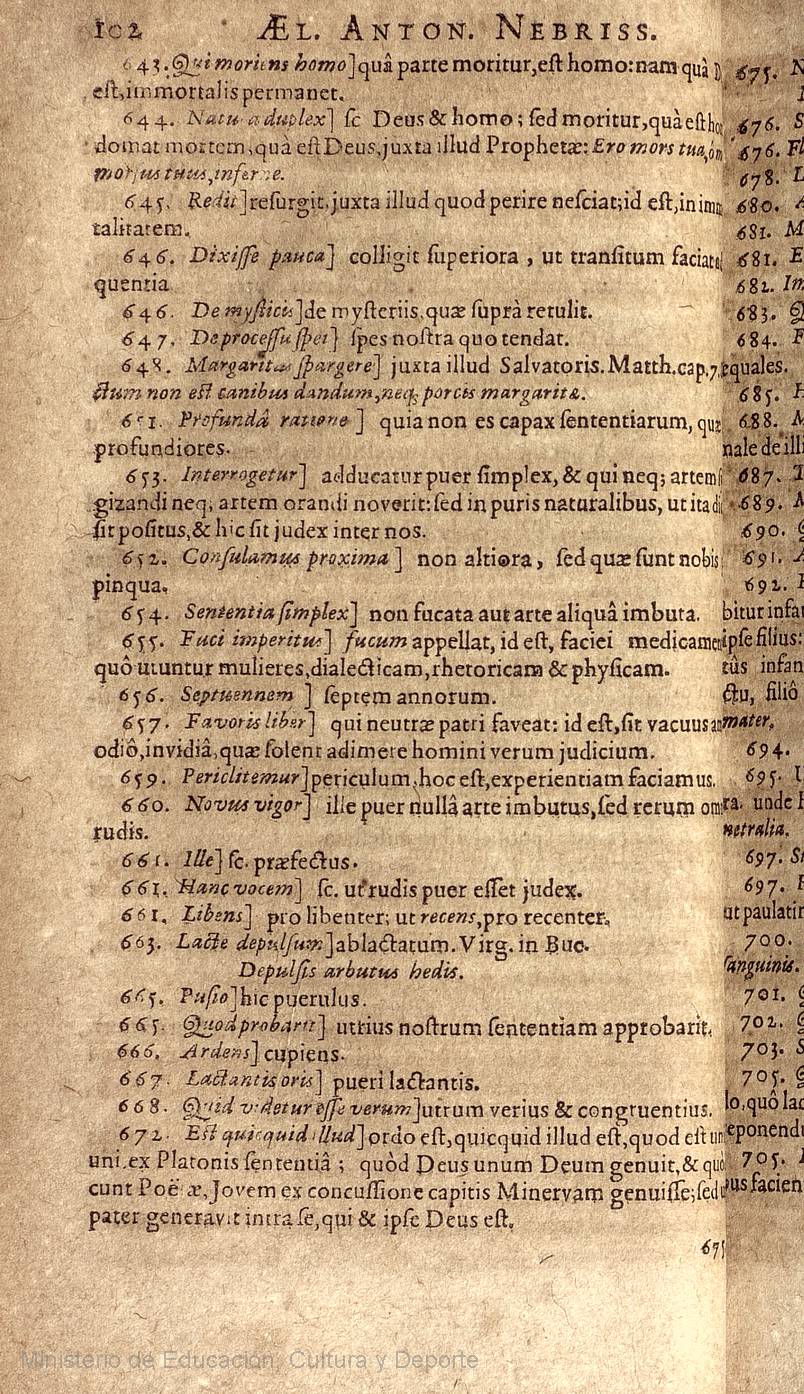 102 ÆL. ANTON. NEBRISS.
643. Qui moriens homo] quâ parte moritur, eſt homo: nam quâ
eſt, immortalis permanet.
644. Natura duplex] ſc Deus & homo; ſed moritur, quà eſt
domat mortem, quà eſt Deus, juxta illud Prophetæ: Ero mors tua,
morſus tuus, inferne.
645. Redit] reſurgit, juxta illud quod perire neſciat; id eſt, in
talitatem.
646. Dixiſſe pauca] colligit ſuperiora, ut tranſitum faciat
quentia
646. De myſticis] de myſteriis, quæ ſuprà retulit.
647. De proceſſu ſpei] ſpes noſtra quo tendat.
648. Margaritas ſpargere] juxta illud Salvatoris. Matth. cap. 7.
ctum non eſt canibus dandum, neq; porcis margaritæ.
651. Profundâ ratione] quia non es capax ſententiarum,
profundiores.
653. Interrogetur] adducatur puer ſimplex, & qui neq; artem
gizandi neq; artem orandi noverit: ſed in puris naturalibus, ut ita
ſit poſitus, & hic ſit judex inter nos.
652. Conſulamus proxima] non altiora, ſed quæ ſunt nobis
pinqua.
654. Sententia ſimplex] non fucata aut arte aliquâ imbuta.
655. Fuci imperitus] fucum appellat, id eſt, faciei
quô utuntur mulieres, dialecticam, rhetoricam & phyſicam.
656. Septuennem] ſeptem annorum.
657. Favoris liber] qui neutræ patri faveat: id eſt, ſit vacuus
odiô, invidiâ, quæ ſolent adimere homini verum judicium.
659. Periclitemur] periculum, hoc eſt, experientiam faciamus.
660. Novus vigor] ille puer nullâ arte imbutus, ſed rerum
rudis.
661. Ille] ſc. præfectus.
661. Hanc vocem] ſc. ut rudis puer eſſet judex.
661. Libens] pro libenter; ut recens, pro recenter.
663. Lacte depulſum] ablactatum. Virg. in Buc.
Depulſis arbutus hedis.
665. Puſio] hic puerulus.
665. Quod probarit] utrius noſtrum ſententiam approbarit.
666. Ardens] cupiens.
667. Lactantis oris] pueri lactantis.
668. Quid videtur eſſe verum] utrum verius & congruentius.
672. Eſt quicquid illud] ordo eſt, quicquid illud eſt, quod eſt
uni, ex Platonis ſententiâ; quòd Deus unum Deum genuit, &
cunt Poëtæ, Jovem ex concuſſione capitis Minervam genuiſſe; ſed
pater generavit intra ſe, qui & ipſe Deus eſt.
675.
676. S
676. Fl
678. L
680.
681. M
681. E
682. Im
683. Q
684. F
equales.
685.
688.
nale de illi
687.
689.
690.
691.
692.
bitur infa
ipſe filius:
tûs infan
ctu, filiô
mater.
694.
695.
ra. unde
netralia.
697.
697.
ut paulatir
700.
ſanguinis.
701.
702.
703. S
705.
lo, quô lac
eponend
705.
us facien
Ministerio de Educación, Cultura y Deporte